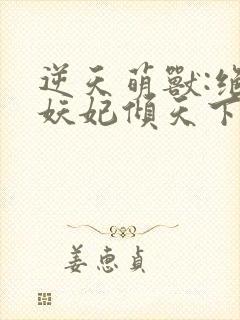 逆天萌獸:絕
妖妃傾天下
姜惠貞